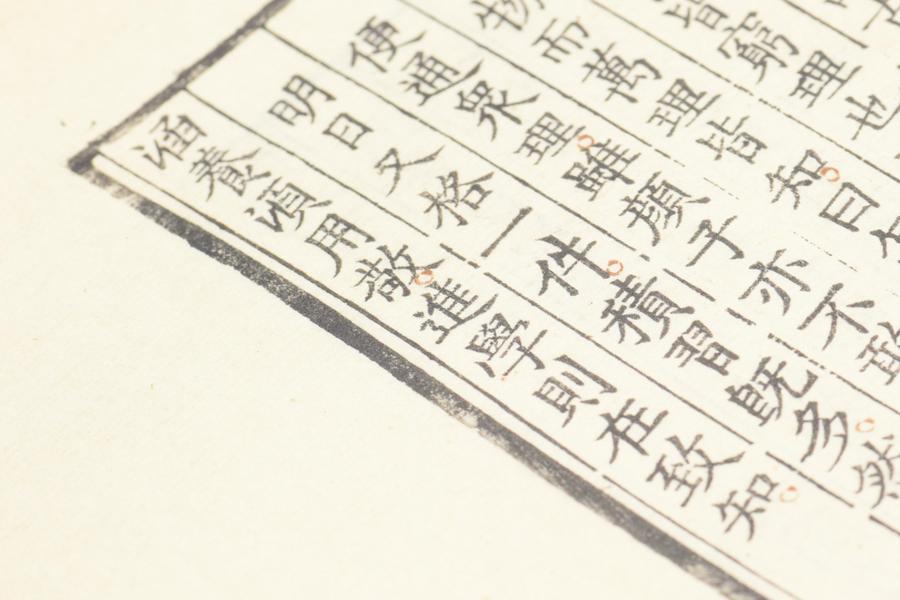 皆窮理也
物而萬理皆知曰
便通衆理雖顔子亦不敢
明日又格一件積習既多然
涵養湏用敬進學則在致知